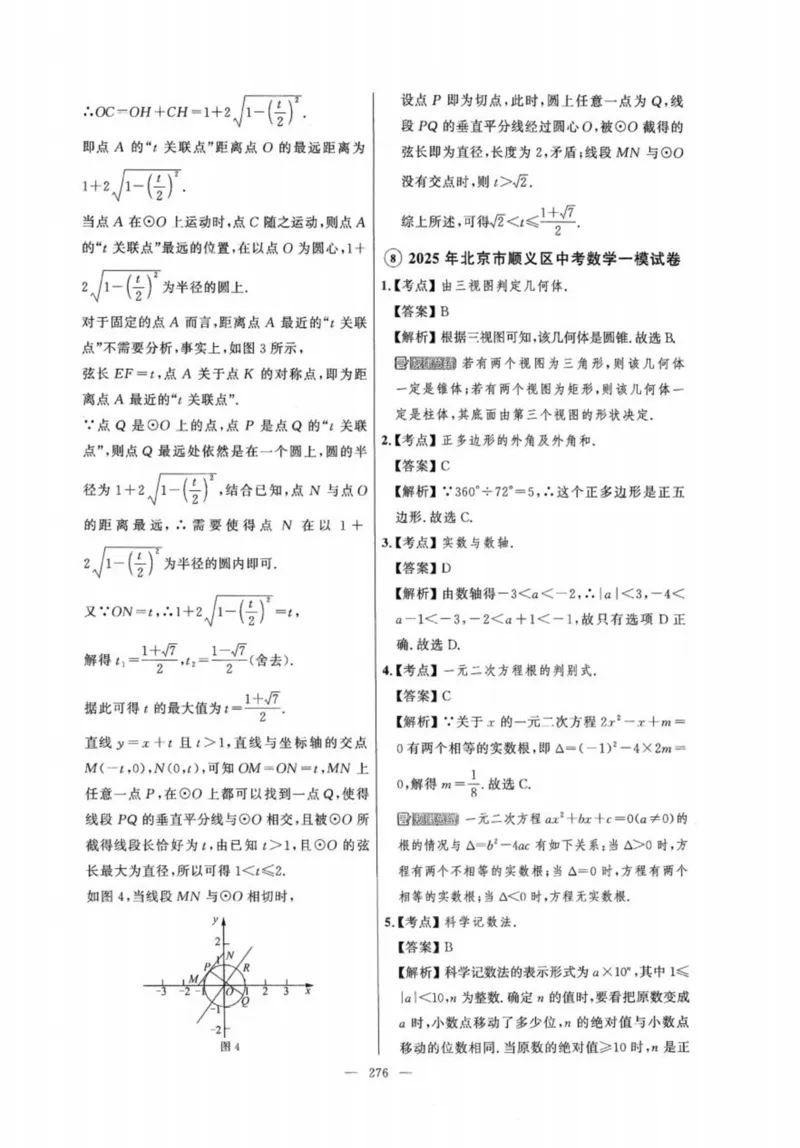 ∴OC=OH+CH=1+2√(1-(t/2)²).
即点 A 的“t 关联点”距离点 O 的最远距离为
1+2√(1-(t/2)²).
当点 A 在⊙O 上运动时,点 C 随之运动,则点 A
的“t 关联点”最远的位置,在以点 O 为圆心,1+
2√(1-(t/2)²)为半径的圆上.
对于固定的点 A 而言,距离点 A 最近的“t 关联
点”不需要分析,事实上,如图 3 所示,
弦长 EF=t,点 A 关于点 K 的对称点,即为距
离点 A 最近的“t 关联点”.
∵点 Q 是⊙O 上的点,点 P 是点 Q 的“t 关联
点”,则点 Q 最远处依然是在一个圆上,圆的半
径为 1+2√(1-(t/2)²),结合已知,点 N 与点 O
的距离最远,∴需要使得点 N 在以 1+
2√(1-(t/2)²)为半径的圆内即可.
又∵ON=t,∴1+2√(1-(t/2)²)=t,
解得 t₁=(1+√7)/2,t₂=(1-√7)/2(舍去).
据此可得 t 的最大值为 t=(1+√7)/2.
直线 y=x+t 且 t>1,直线与坐标轴的交点
M(-t,0),N(0,t),可知 OM=ON=t,MN 上
任意一点 P,在⊙O 上都可以找到一点 Q,使得
线段 PQ 的垂直平分线与⊙O 相交,且被⊙O 所
截得线段长恰好为 t,由已知 t>1,且⊙O 的弦
长最大为直径,所以可得 1<t≤2.
如图 4,当线段 MN 与⊙O 相切时,
y
2
N
1
P
R
M
-3 -2 -1 O 1 2 3 x
Q
-1
-2
图 4
设点 P 即为切点,此时,圆上任意一点为 Q,线
段 PQ 的垂直平分线经过圆心 O,被⊙O 截得的
弦长即为直径,长度为 2,矛盾;线段 MN 与⊙O
没有交点时,则 t>√2.
综上所述,可得√2<t≤(1+√7)/2.
⑧ 2025 年北京市顺义区中考数学一模试卷
1.【考点】由三视图判定几何体.
【答案】B
【解析】根据三视图可知,该几何体是圆锥.故选 B.
若有两个视图为三角形,则该几何体
一定是锥体;若有两个视图为矩形,则该几何体一
定是柱体,其底面由第三个视图的形状决定.
2.【考点】正多边形的外角及外角和.
【答案】C
【解析】∵360°÷72°=5,∴这个正多边形是正五
边形.故选 C.
3.【考点】实数与数轴.
【答案】D
【解析】由数轴得-3<a<-2,∴|a|<3,-4<
a-1<-3,-2<a+1<-1,故只有选项 D 正
确.故选 D.
4.【考点】一元二次方程根的判别式.
【答案】C
【解析】∵关于 x 的一元二次方程 2x²-x+m=
0 有两个相等的实数根,即 Δ=(-1)²-4×2m=
0,解得 m=1/8.故选 C.
一元二次方程 ax²+bx+c=0(a≠0)的
根的情况与 Δ=b²-4ac 有如下关系:当 Δ>0 时,方
程有两个不相等的实数根;当 Δ=0 时,方程有两个
相等的实数根;当 Δ<0 时,方程无实数根.
5.【考点】科学记数法.
【答案】B
【解析】科学记数法的表示形式为 a×10ⁿ,其中 1≤
|a|<10,n 为整数.确定 n 的值时,要看把原数变成
a 时,小数点移动了多少位,n 的绝对值与小数点
移动的位数相同.当原数的绝对值≥10 时,n 是正
— 276 —